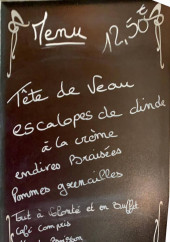 Menu 12,50€
Tête de Veau
escalopes de dinde
à la crème
endives Braisées
Pommes grenailles
Tout à Volonté et en Buffet
Café compris